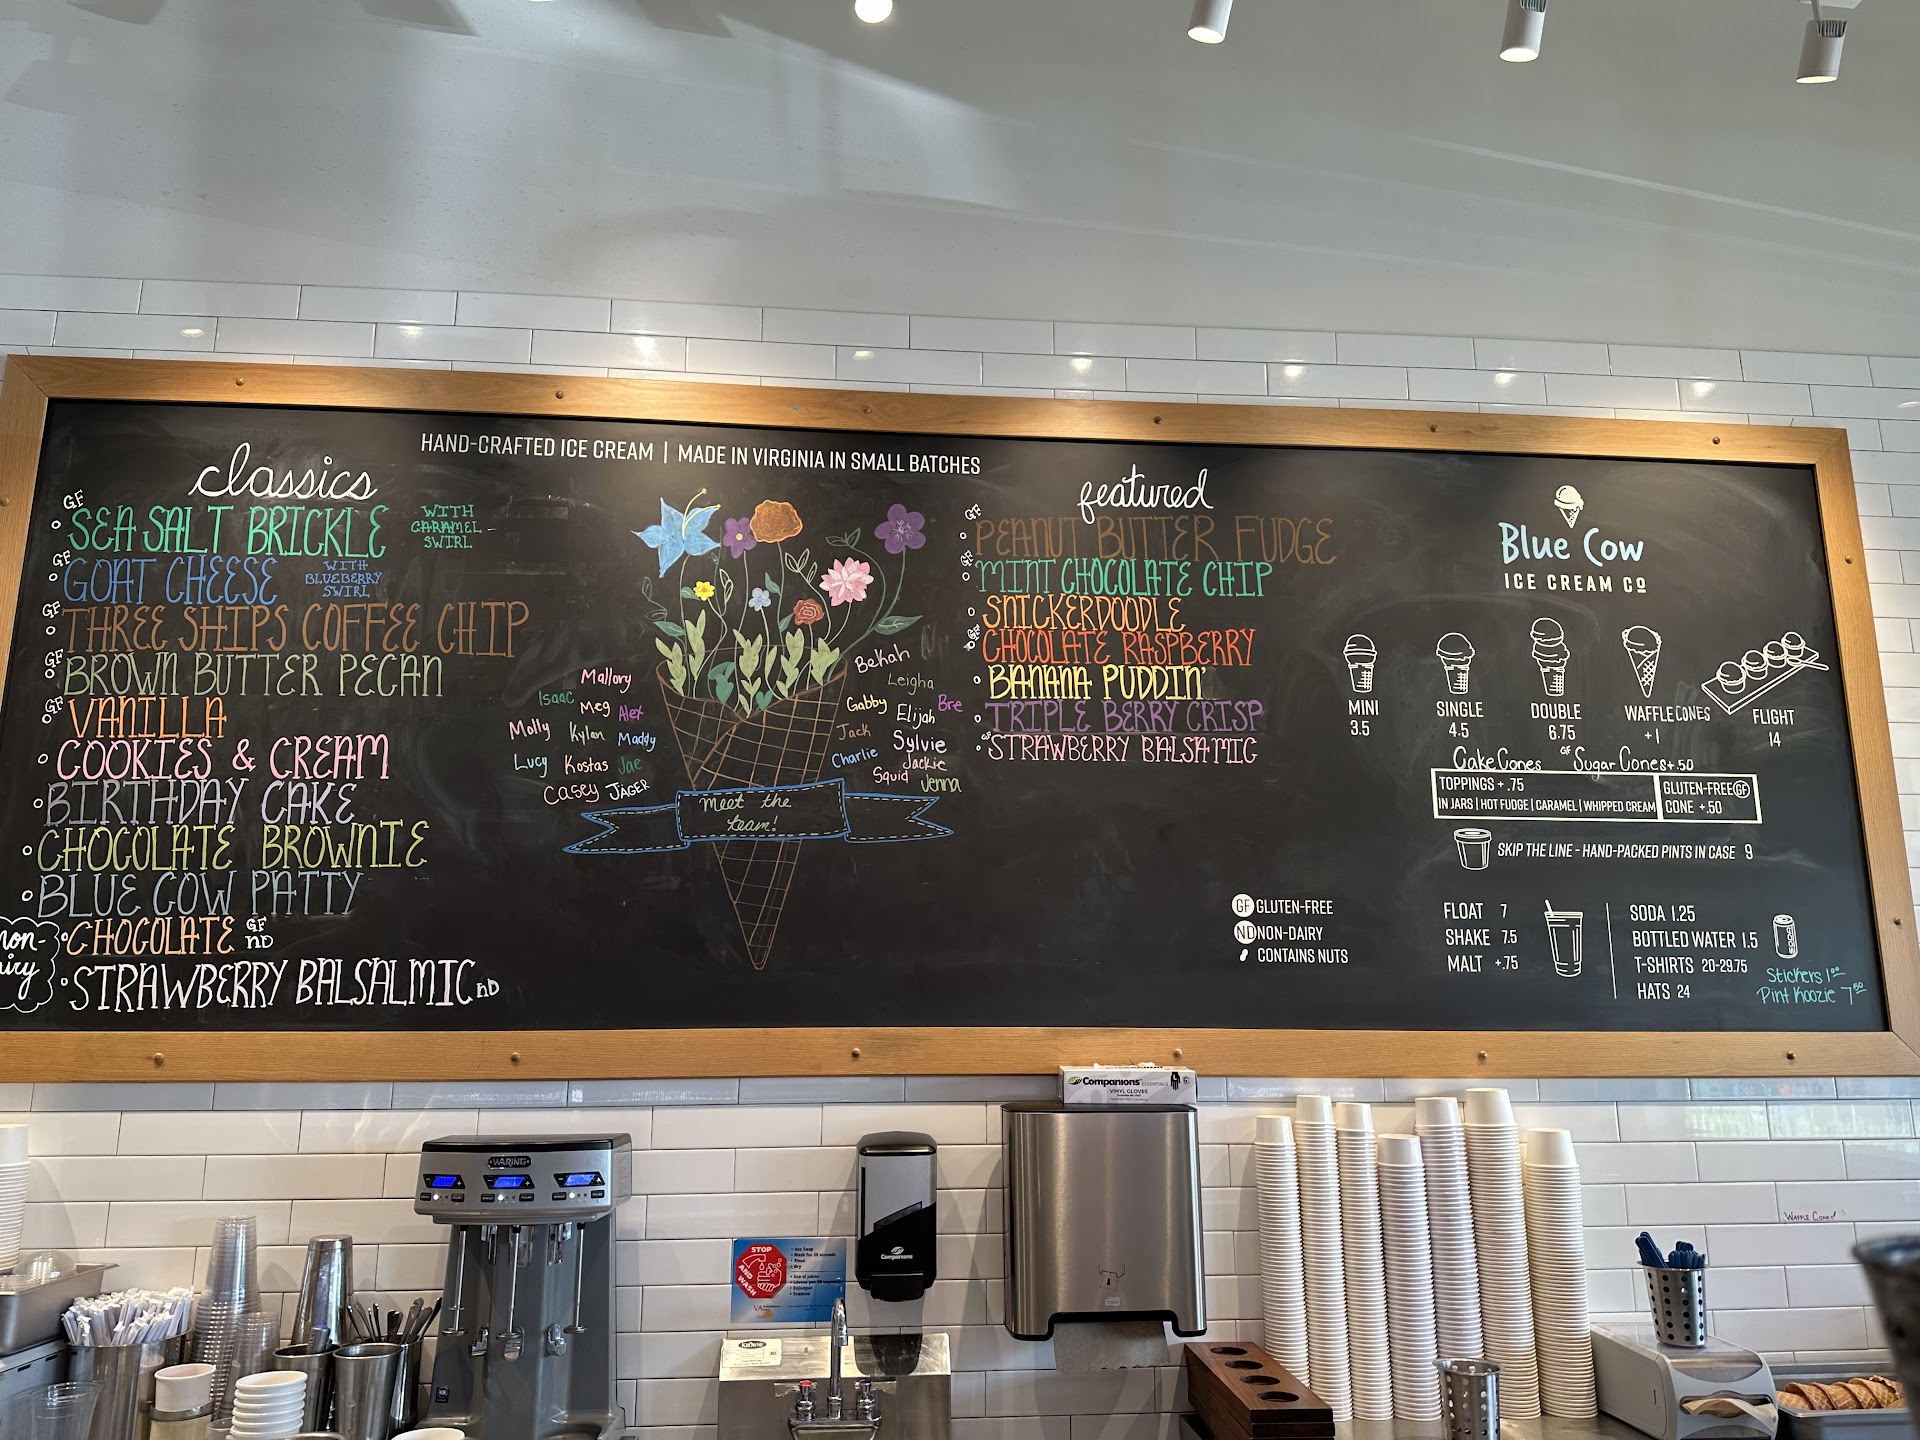 HAND-CRAFTED ICE CREAM | MADE IN VIRGINIA IN SMALL BATCHES
classics
GF
SEA SALT BRICKLE WITH
CARAMEL-
SWIRL
GF
GOAT CHEESE WITH
BLUEBERRY
SWIRL
GF
THREE SHIPS COFFEE CHIP
GF
BROWN BUTTER PECAN
GF
VANILLA
COOKIES & CREAM
BIRTHDAY CAKE
CHOCOLATE BROWNIE
BLUE COW PATTY
CHOCOLATE GF
ND
STRAWBERRY BALSALMIC ND
Mallory
Isaac Meg Alex
Molly Kylan Maddy
Lucy Kostas Jae
Casey JAGER
Bekah
Leigha
Gabby Elijah Bre
Jack Sylvie
Charlie Jackie
Squid Jenna
meet the
team!
featured
GF
PEANUT BUTTER FUDGE
GF
MINT CHOCOLATE CHIP
SNICKERDOODLE
GF
CHOCOLATE RASPBERRY
BANANA PUDDIN'
TRIPLE BERRY CRISP
GF
STRAWBERRY BALSAMIC
GF GLUTEN-FREE
ND NON-DAIRY
CONTAINS NUTS
Blue Cow
ICE CREAM CO
MINI SINGLE DOUBLE WAFFLE CONES FLIGHT
3.5 4.5 6.75 +1 14
Cake Cones GF Sugar Cones +.50
TOPPINGS + .75
IN JARS | HOT FUDGE | CARAMEL | WHIPPED CREAM
GLUTEN-FREE GF
CONE +.50
SKIP THE LINE - HAND-PACKED PINTS IN CASE 9
FLOAT 7
SHAKE 7.5
MALT +.75
SODA 1.25
BOTTLED WATER 1.5
T-SHIRTS 20-29.75
HATS 24
SODA
Stickers 1.00
Pint Koozie 7.50
Companions ESSENTIALS
VINYL GLOVES
WARING
STOP
AND
WASH
• Use Soap
• Wash for 20 seconds
• Rinse
• Dry
Companions
WAFFLE CONES